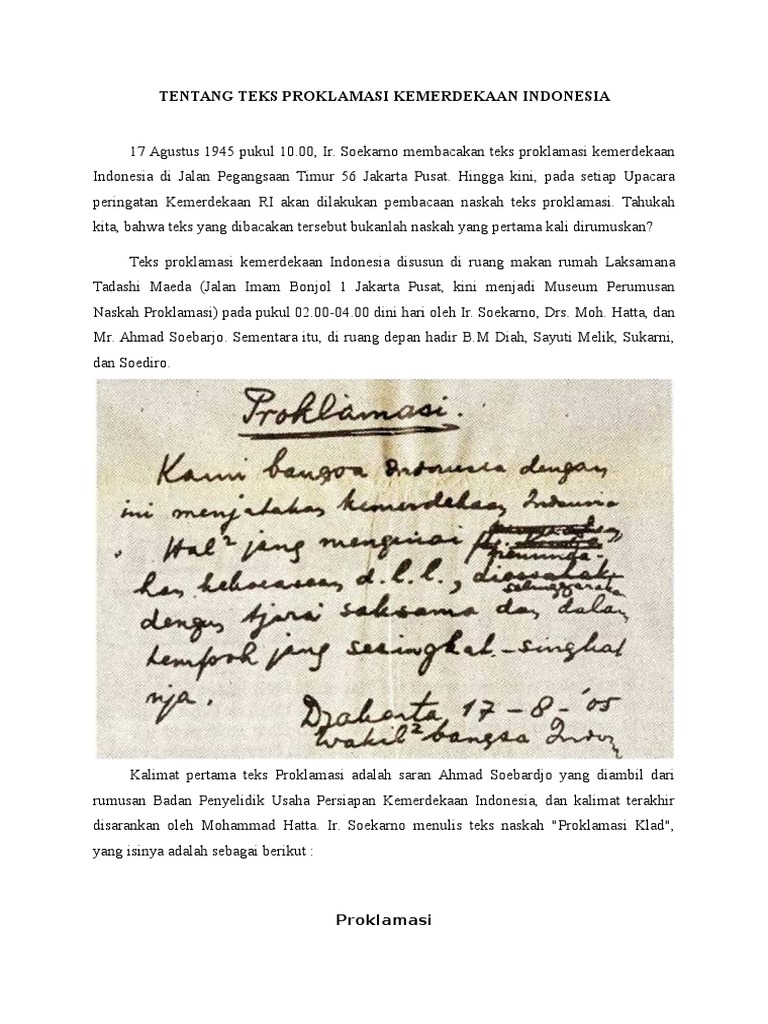 TENTANG TEKS PROKLAMASI KEMERDEKAAN INDONESIA
17 Agustus 1945 pukul 10.00, Ir. Soekarno membacakan teks proklamasi kemerdekaan
Indonesia di Jalan Pegangsaan Timur 56 Jakarta Pusat. Hingga kini, pada setiap Upacara
peringatan Kemerdekaan RI akan dilakukan pembacaan naskah teks proklamasi. Tahukah
kita, bahwa teks yang dibacakan tersebut bukanlah naskah yang pertama kali dirumuskan?
Teks proklamasi kemerdekaan Indonesia disusun di ruang makan rumah Laksamana
Tadashi Maeda (Jalan Imam Bonjol 1 Jakarta Pusat, kini menjadi Museum Perumusan
Naskah Proklamasi) pada pukul 02.00-04.00 dini hari oleh Ir. Soekarno, Drs. Moh. Hatta, dan
Mr. Ahmad Soebarjo. Sementara itu, di ruang depan hadir B.M Diah, Sayuti Melik, Sukarni,
dan Soediro.
Proklamasi.
Kami bangsa Indonesia dengan
ini menjatakan kemerdekaan Indonesia
. Hal² jang mengenai
peminda-
han kekoeasaan d.l.l., dioesahakan
selenggarakan
dengan tjara saksama dan dalam
tempoh jang sesingkat-singkat
nja.
Djakarta, 17-8-'05
Wakil² bangsa Indon
Kalimat pertama teks Proklamasi adalah saran Ahmad Soebardjo yang diambil dari
rumusan Badan Penyelidik Usaha Persiapan Kemerdekaan Indonesia, dan kalimat terakhir
disarankan oleh Mohammad Hatta. Ir. Soekarno menulis teks naskah "Proklamasi Klad",
yang isinya adalah sebagai berikut :
Proklamasi